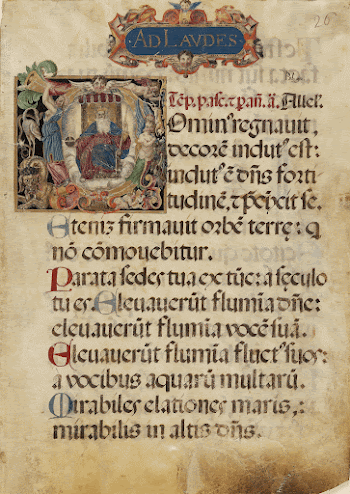 AD LAVDES
20
Tēp. pasc. t̄ pañ. ã. Allel.
Ominꝰ regnavit,
decorē indutꝰ est:
indutꝰ ē dn̄s forti
tudinē, t̄ p̄cīxit se.
Eteniz firmavit orbē terrę: q
nō cōmovebitur.
Parata sedes tua ex tūc: a sęculo
tu es. Elevaverūt flumīa dn̄e:
elevaverūt flumīa vocē suā.
Elevaverūt flumīa fluctꝰ suos:
a vocibus aquarū multarū.
Mirabiles elationes maris,:
mirabilis in altis dn̄s.